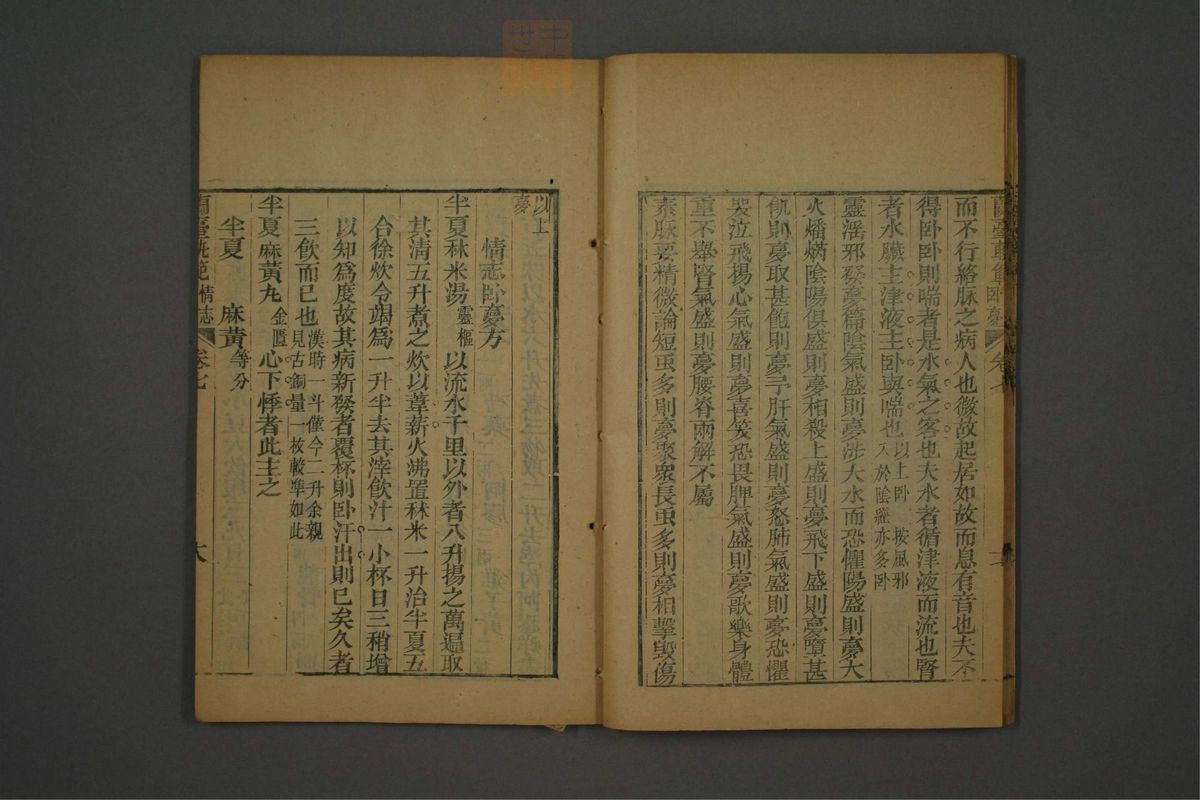 而不行絡脉之病人也微故起居如故而息有音也夫不
得卧卧則喘者是水氣之客也夫水者循津液而流也腎
者水臟主津液主卧與喘也以上卧 按風邪入於陰經亦多卧
靈淫邪發夢篇陰氣盛則夢涉大水而恐懼陽盛則夢大
火燔焫陰陽俱盛則夢相殺上盛則夢飛下盛則夢墮甚
飢則夢取甚飽則夢予肝氣盛則夢怒肺氣盛則夢恐懼
哭泣飛揚心氣盛則夢喜笑恐畏脾氣盛則夢歌樂身體
重不舉腎氣盛則夢腰脊兩解不屬
素脉要精微論短虫多則夢聚衆長虫多則夢相擊毀傷
以上夢
情志卧夢方
半夏秫米湯靈樞 以流水千里以外者八升揚之萬遍取
其清五升煮之炊以葦薪火沸置秫米一升治半夏五
合徐炊令竭為一升半去其滓飲汁一小杯日三稍增
以知為度故其病新發者覆杯則卧汗出則已矣久者
三飲而已也漢時一斗僅今二升余親見古銅量一枚較準如此
半夏麻黃丸金匱 心下悸者此主之
半夏 麻黃等分
蘭臺軌範情志 卷七 六